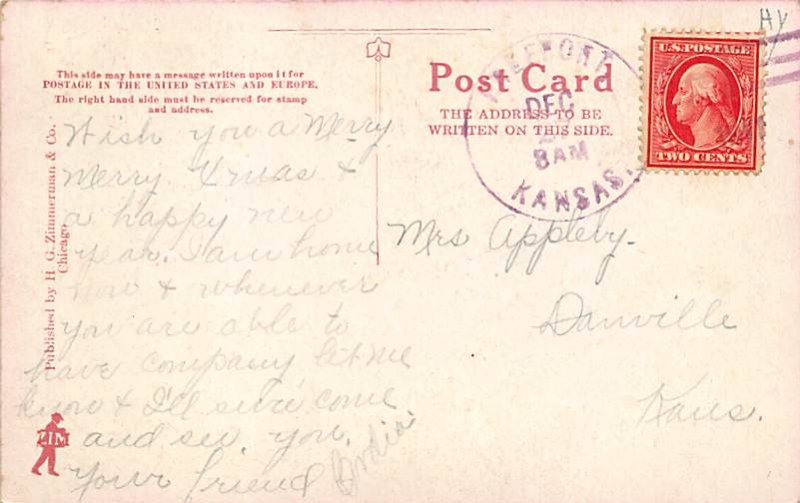 This side may have a message written upon it for
POSTAGE IN THE UNITED STATES AND EUROPE.
The right hand side must be reserved for stamp
and address.
Post Card
THE ADDRESS TO BE
WRITTEN ON THIS SIDE.
DEC
8 AM
KANSAS.
U.S. POSTAGE
TWO CENTS
HY
Wish you a Merry
Merry Xmas &
a happy new
year. I am home
now & whenever
you are able to
have company let me
know & I'll sure come
and see you.
Your friend
Mrs Appleby.
Danville
Kans.
Published by H. G. Zimmerman & Co.
Chicago
ZIM